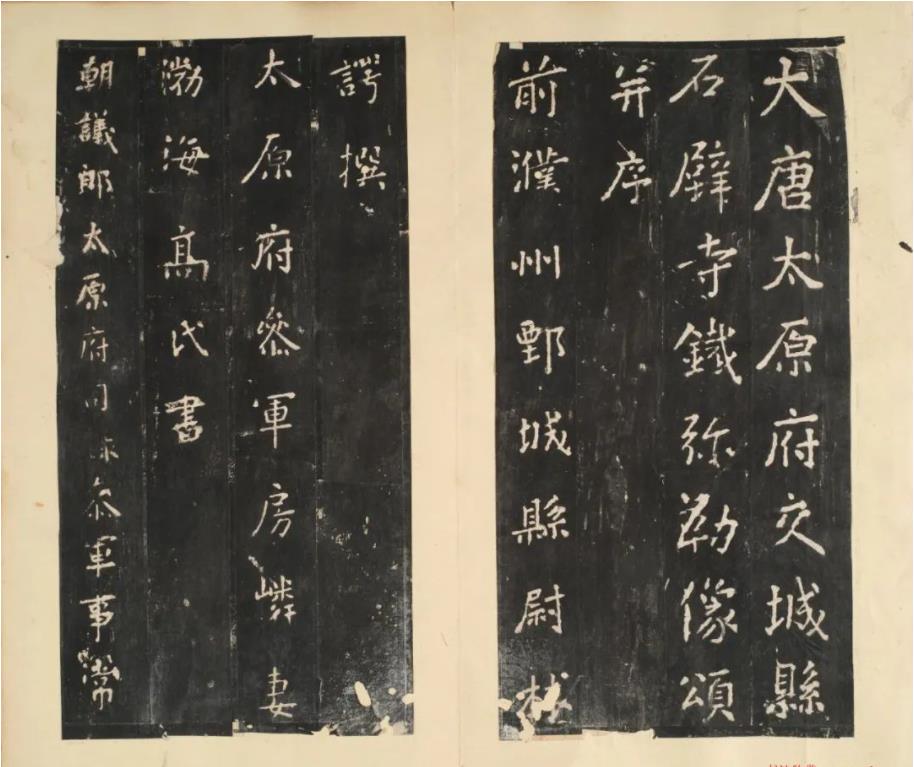 大唐太原府交城縣
石壁寺鐵弥勒像頌
并序
前濮州鄄城縣尉林
諤撰
太原府叅軍房嶙妻
渤海髙氏書
朝議郎太原府叅軍事